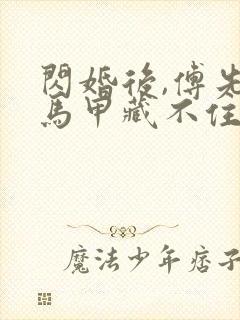 閃婚後,傅先
馬甲藏不住
魔法少年痞子